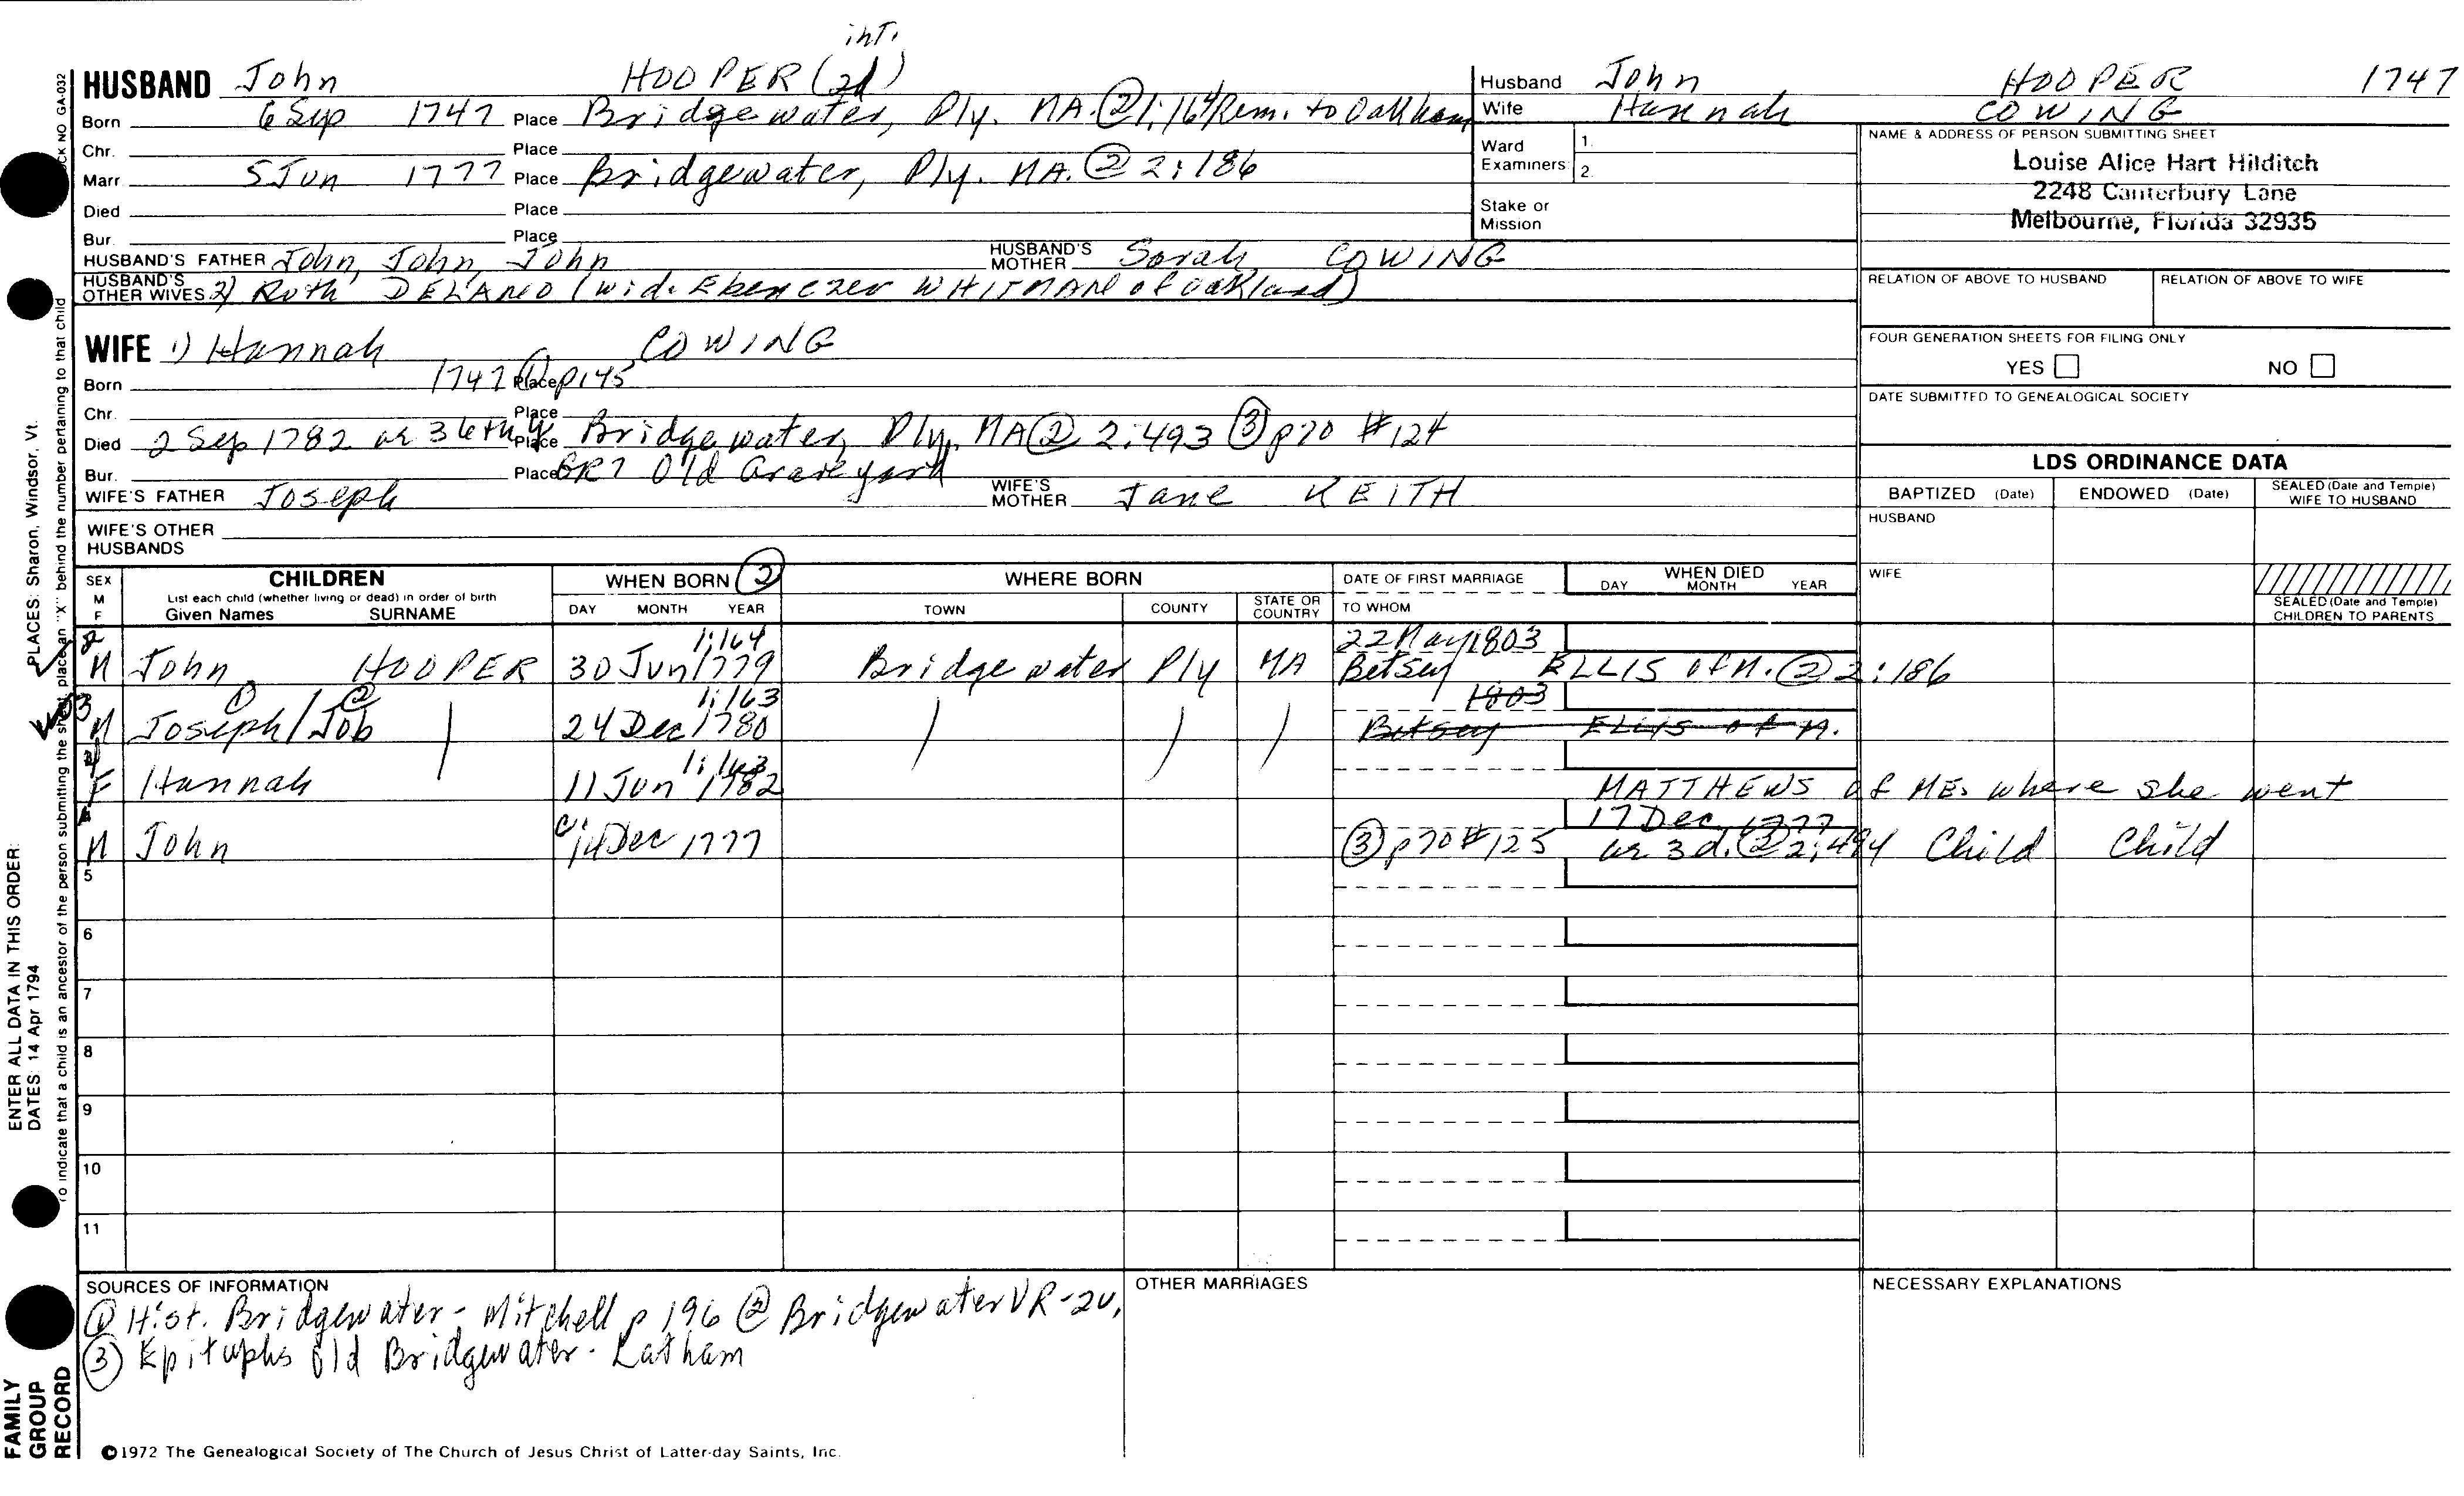 int.
HUSBAND John HOOPER (2d)
Born 6 Sep 1747 Place Bridgewater, Ply. MA. ② 1:164 Rem. to Oakham
Chr. Place
Marr. 5 Jun 1777 Place Bridgewater, Ply. MA. ② 2:186
Died Place
Bur. Place
HUSBAND'S FATHER John, John, John HUSBAND'S MOTHER Sarah COWING
HUSBAND'S OTHER WIVES 2) Ruth DELANO (wid. Ebenezer WHITMAN of Oakland)
Husband John HOOPER 1747
Wife Hannah COWING
Ward Examiners 1. 2.
Stake or Mission
NAME & ADDRESS OF PERSON SUBMITTING SHEET
Louise Alice Hart Hilditch
2248 Canterbury Lane
Melbourne, Florida 32935
RELATION OF ABOVE TO HUSBAND RELATION OF ABOVE TO WIFE
FOUR GENERATION SHEETS FOR FILING ONLY
YES NO
DATE SUBMITTED TO GENEALOGICAL SOCIETY
WIFE 1) Hannah COWING
Born 1747 ① Place p145
Chr. Place
Died 2 Sep 1782 ae 36th y Place Bridgewater, Ply. MA ② 2:493 ③ p70 #124
Bur. Place GR7 Old Graveyard
WIFE'S FATHER Joseph WIFE'S MOTHER Jane KEITH
WIFE'S OTHER HUSBANDS
LDS ORDINANCE DATA
BAPTIZED (Date) ENDOWED (Date) SEALED (Date and Temple) WIFE TO HUSBAND
HUSBAND
WIFE
SEALED (Date and Temple) CHILDREN TO PARENTS
SEX M F
CHILDREN
List each child (whether living or dead) in order of birth
Given Names SURNAME
WHEN BORN ②
DAY MONTH YEAR
WHERE BORN
TOWN COUNTY STATE OR COUNTRY
DATE OF FIRST MARRIAGE
TO WHOM
WHEN DIED
DAY MONTH YEAR
2 1:164 22 May 1803
M John HOOPER 30 Jun 1779 Bridgewater Ply MA Betsey ELLIS of M. ② 2:186
3 ① ② 1:163 1803
M Joseph/Job 24 Dec 1780 Betsey ELLIS of M.
1:163
F Hannah 11 Jun 1782 MATTHEWS of ME. where she went
17 Dec 1777
M John 14 Dec 1777 ③ p70 #125 ae 3 d. ② 2:494 Child Child
5
6
7
8
9
10
11
SOURCES OF INFORMATION
① Hist. Bridgewater - Mitchell p 196 ② Bridgewater VR-2v,
③ Epitaphs Old Bridgewater - Latham
OTHER MARRIAGES
NECESSARY EXPLANATIONS
©1972 The Genealogical Society of The Church of Jesus Christ of Latter-day Saints, Inc.
FAMILY
GROUP
RECORD
ENTER ALL DATA IN THIS ORDER:
DATES: 14 Apr 1794
PLACES: Sharon, Windsor, Vt.
To indicate that a child is an ancestor of the person submitting the sheet, place an "X" behind the number pertaining to that child
CK NO GA-032